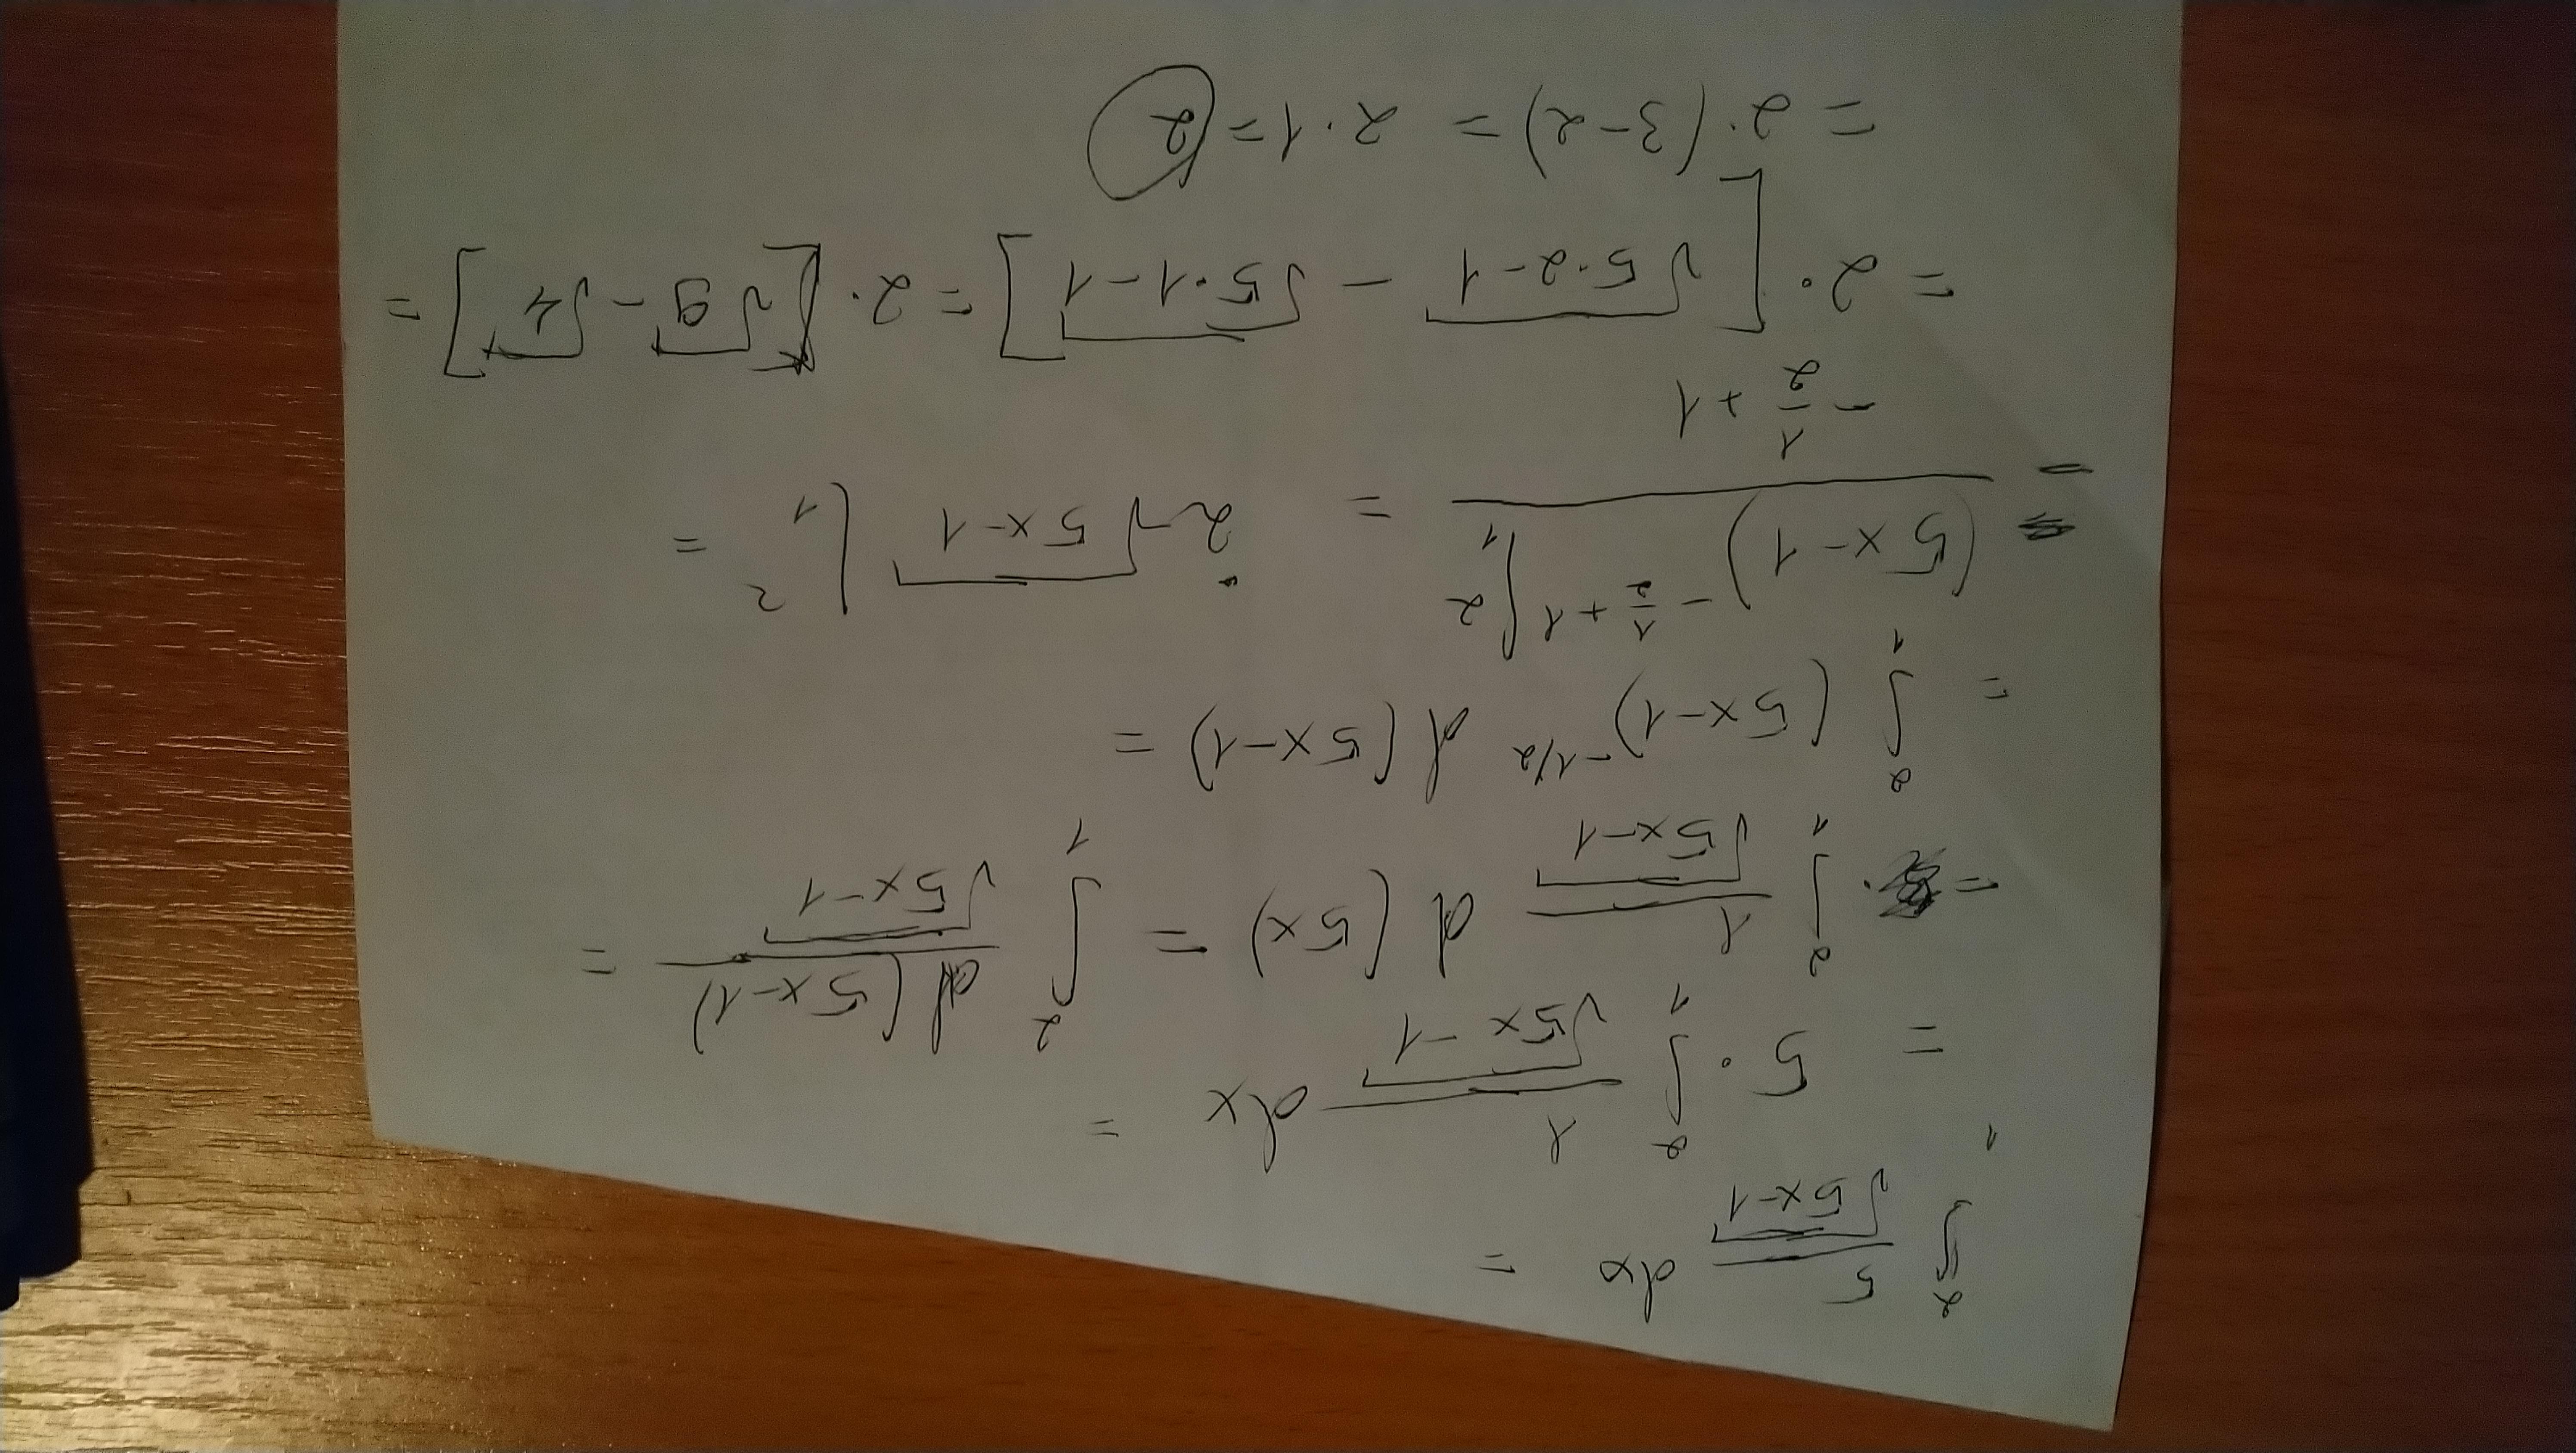 ∫₁² 5/√(5x-1) dx =
= 5 · ∫₁² 1/√(5x-1) dx =
= · ∫₁² 1/√(5x-1) d(5x) = ∫₁² d(5x-1)/√(5x-1) =
= ∫₁² (5x-1)^(-1/2) d(5x-1) =
= (5x-1)^(-1/2+1) |₁² / (-1/2+1) = 2√(5x-1) |₁² =
= 2 · [√(5·2-1) - √(5·1-1)] = 2 · [√9 - √4] =
= 2 · (3-2) = 2·1 = 2